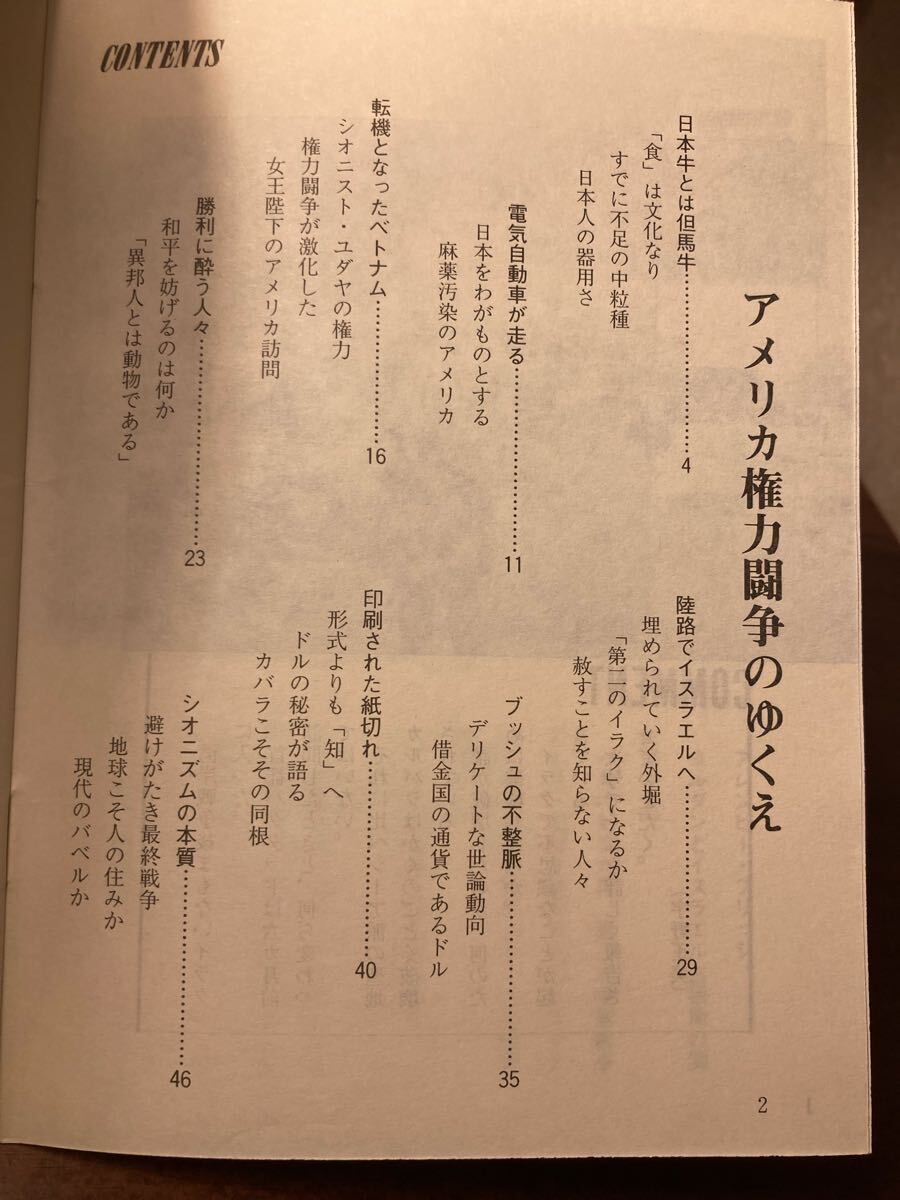 CONTENTS
アメリカ権力闘争のゆくえ
日本牛とは但馬牛……………………4
「食」は文化なり
すでに不足の中粒種
日本人の器用さ
電気自動車が走る……………………11
日本をわがものとする
麻薬汚染のアメリカ
転機となったベトナム………………16
シオニスト・ユダヤの権力
権力闘争が激化した
女王陛下のアメリカ訪問
勝利に酔う人々………………………23
和平を妨げるのは何か
「異邦人とは動物である」
陸路でイスラエルへ…………………29
埋められていく外堀
「第二のイラク」になるか
赦すことを知らない人々
ブッシュの不整脈……………………35
デリケートな世論動向
借金国の通貨であるドル
印刷された紙切れ……………………40
形式よりも「知」へ
ドルの秘密が語る
カバラこそその同根
シオニズムの本質……………………46
避けがたき最終戦争
地球こそ人の住みか
現代のバベルか
2